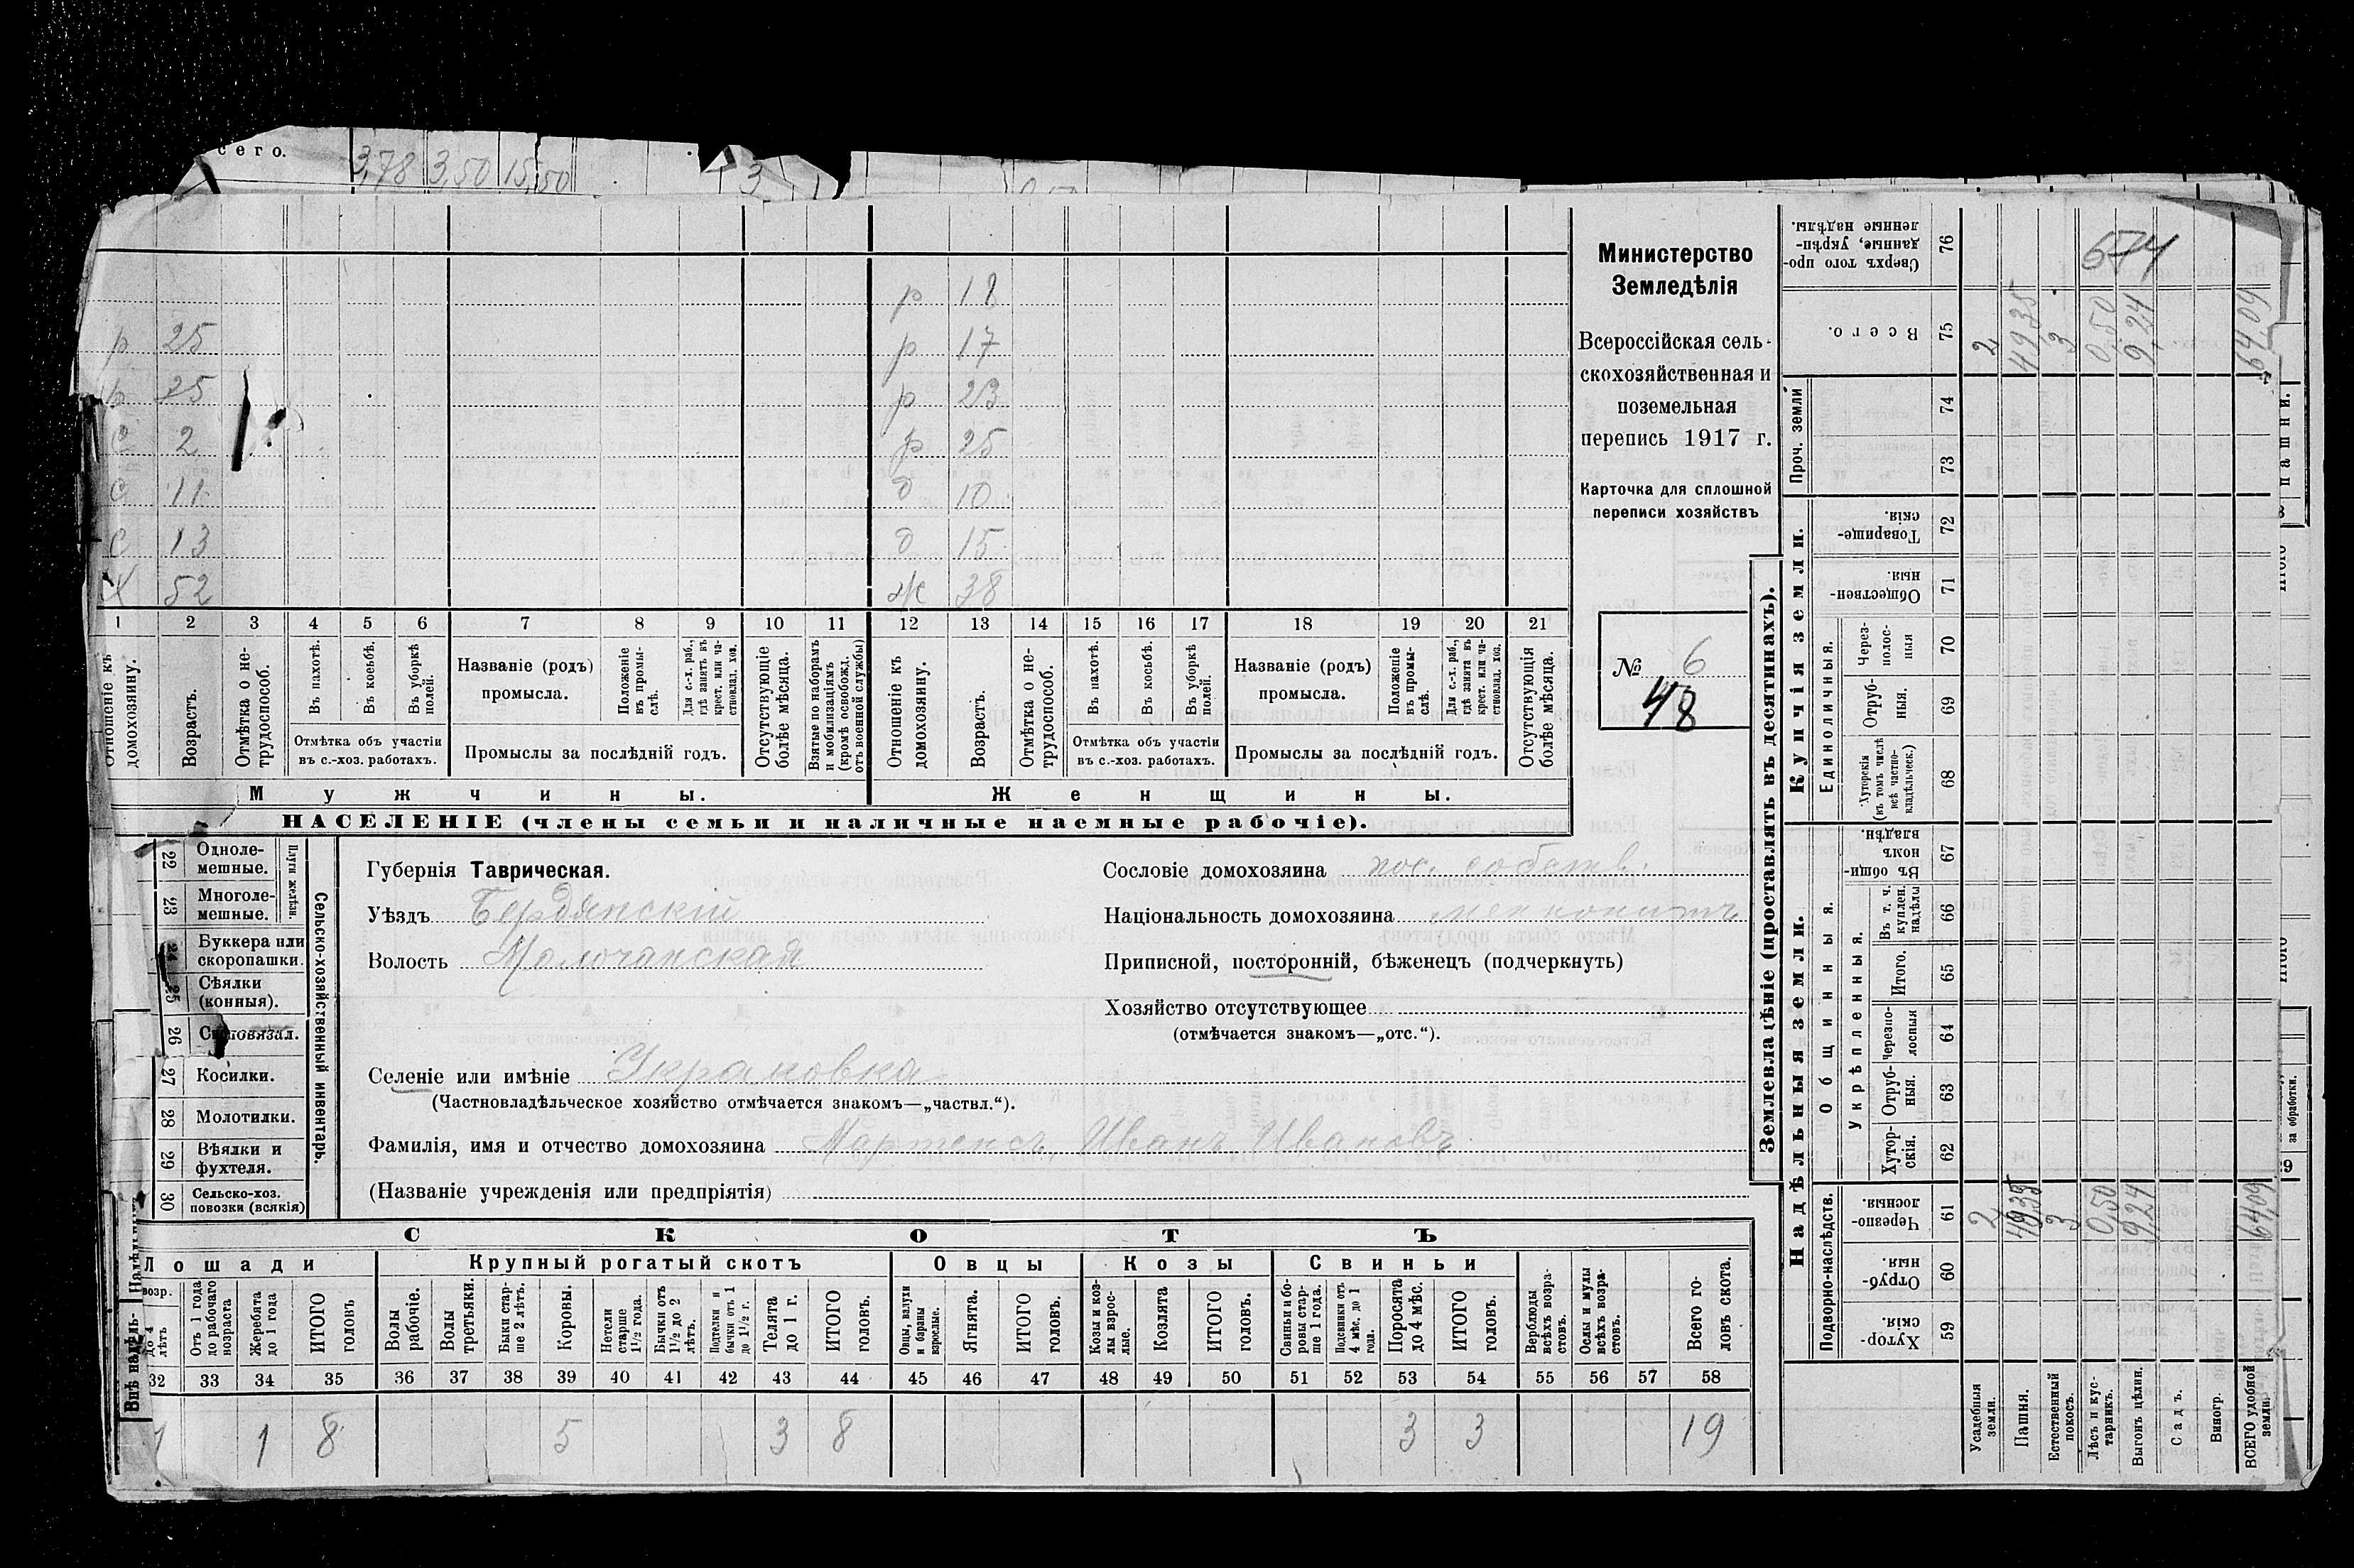 сего. 3,78 3,50 15,50 3
р 18
р 25 р 17
р 25 р 23
с 2 р 25
с 11 д 10
с 13 д 15
х 52 ж 38
1 2 3 4 5 6 7 8 9 10 11 12 13 14 15 16 17 18 19 20 21
Отношеніе къ домохозяину.
Возрастъ.
Отмѣтка о не-трудоспособ.
Въ пахотѣ.
Въ косьбѣ.
Въ уборкѣ полей.
Отмѣтка объ участіи
въ с.-хоз. работахъ.
Названіе (родъ)
промысла.
Положеніе въ промы-слѣ.
Для с.-х. раб., гдѣ занятъ въ крест. или ча-стновлад. хоз.
Промыслы за послѣдній годъ.
Отсутствующіе болѣе мѣсяца.
Взятые по наборамъ и мобилизаціямъ (кромѣ освобожд. отъ военной службы)
Отношеніе къ домохозяину.
Возрастъ.
Отмѣтка о не-трудоспособ.
Въ пахотѣ.
Въ косьбѣ.
Въ уборкѣ полей.
Отмѣтка объ участіи
въ с.-хоз. работахъ.
Названіе (родъ)
промысла.
Положеніе въ промы-слѣ.
Для с.-х. раб., гдѣ занята въ крест. или ча-стновлад. хоз.
Промыслы за послѣдній годъ.
Отсутствующія болѣе мѣсяца.
Мужчины. Женщины.
НАСЕЛЕНІЕ (члены семьи и наличные наемные рабочіе).
Министерство
Земледѣлія
Всероссійская сель-
скохозяйственная и
поземельная
перепись 1917 г.
Карточка для сплошной
переписи хозяйствъ
№ 6
48
Сельско-хозяйственный инвентарь.
Плуги желѣзн.
22 Однолемешные.
23 Многолемешные.
24 Буккера или скоропашки.
25 Сѣялки (конныя).
26 Сноповязал.
27 Косилки.
28 Молотилки.
29 Вѣялки и фухтеля.
30 Сельско-хоз. повозки (всякія)
Губернія Таврическая.
Уѣздъ Бердянскій
Волость Молочанская
Сословіе домохозяина пос. собств.
Національность домохозяина меннонитъ
Приписной, посторонній, бѣженецъ (подчеркнуть)
Хозяйство отсутствующее
(отмѣчается знакомъ—„отс.“).
Селеніе или имѣніе
(Частновладѣльческое хозяйство отмѣчается знакомъ—„частвл.“).
Фамилія, имя и отчество домохозяина Мартенсъ, Иванъ Ивановъ
(Названіе учрежденія или предпріятія)
СКОТЪ
Лошади Крупный рогатый скотъ Овцы Козы Свиньи
возр.
до 4 лѣтъ
Отъ 1 года до рабочаго возраста
Жеребята до 1 года
ИТОГО головъ
Волы рабочіе.
Волы третьяки.
Быки стар-ше 2 лѣтъ.
Коровы.
Нетели старше 1½ года.
Бычки отъ 1½ до 2 лѣтъ.
Подтелки и бычки отъ 1 до 1½ г.
Телята до 1 г.
ИТОГО головъ.
Овцы, валухи и бараны взрослые.
Ягнята.
ИТОГО головъ.
Козы и коз-лы взрос-лые.
Козлята
ИТОГО головъ.
Свиньи и бо-ровы стар-ше 1 года.
Подсвинки отъ 4 мѣс. до 1 года.
Поросята до 4 мѣс.
ИТОГО головъ.
Верблюды всѣхъ возра-стовъ.
Ослы и мулы всѣхъ возра-стовъ.
Всего го-ловъ скота.
32 33 34 35 36 37 38 39 40 41 42 43 44 45 46 47 48 49 50 51 52 53 54 55 56 57 58
1 1 8 5 3 8 3 3 19
Землевладѣніе (проставлять въ десятинахъ).
Надѣльныя земли. Купчія земли. Проч. земли
Подворно-наслѣдств.
Общинныя.
Укрѣпленныя.
Единоличныя.
Сверхъ того про-данные, укрѣп-ленные надѣлы. 76
Всего. 75
74
73
Товарище-скія. 72
Обществен-ныя. 71
Через-полос-ныя 70
Отруб-ныя. 69
Хуторскія (въ томъ числѣ всѣ частно-владѣльческ.) 68
Въ общи-номъ владѣн. 67
Въ т. ч. куплен. надѣлы 66
Итого. 65
Черезпо-лосныя 64
Отруб-ныя. 63
Хутор-скія. 62
Черезпо-лосныя. 61
Отруб-ныя. 60
Хутор-скія. 59
Усадебныя земли. 2 2
Пашня. 49,35 49,35
Естественный покосъ. 3 3
Лѣсъ и кус-тарникъ. 0,50 0,50
Выгонъ цѣлин. 9,24 9,24
Садъ.
Виногр.
ВСЕГО удобной земли. 64,09 64,09
574
пашни.
за обработки.
Внѣ надѣль-